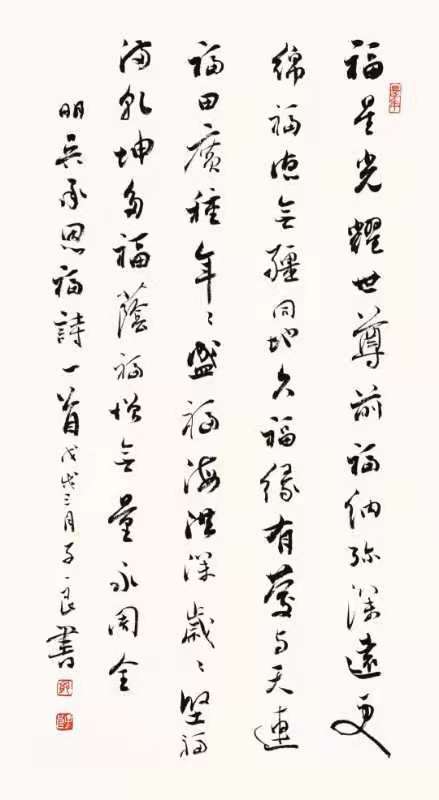 福星光耀世尊前福納弥深遠更
綿福德無疆同地久福緣有慶与天連
福田廣種年〻盛福海洪深歲〻堅福
滿乾坤多福蔭福增無量永周全
明吳承恩福詩一首戊戌三月子良書